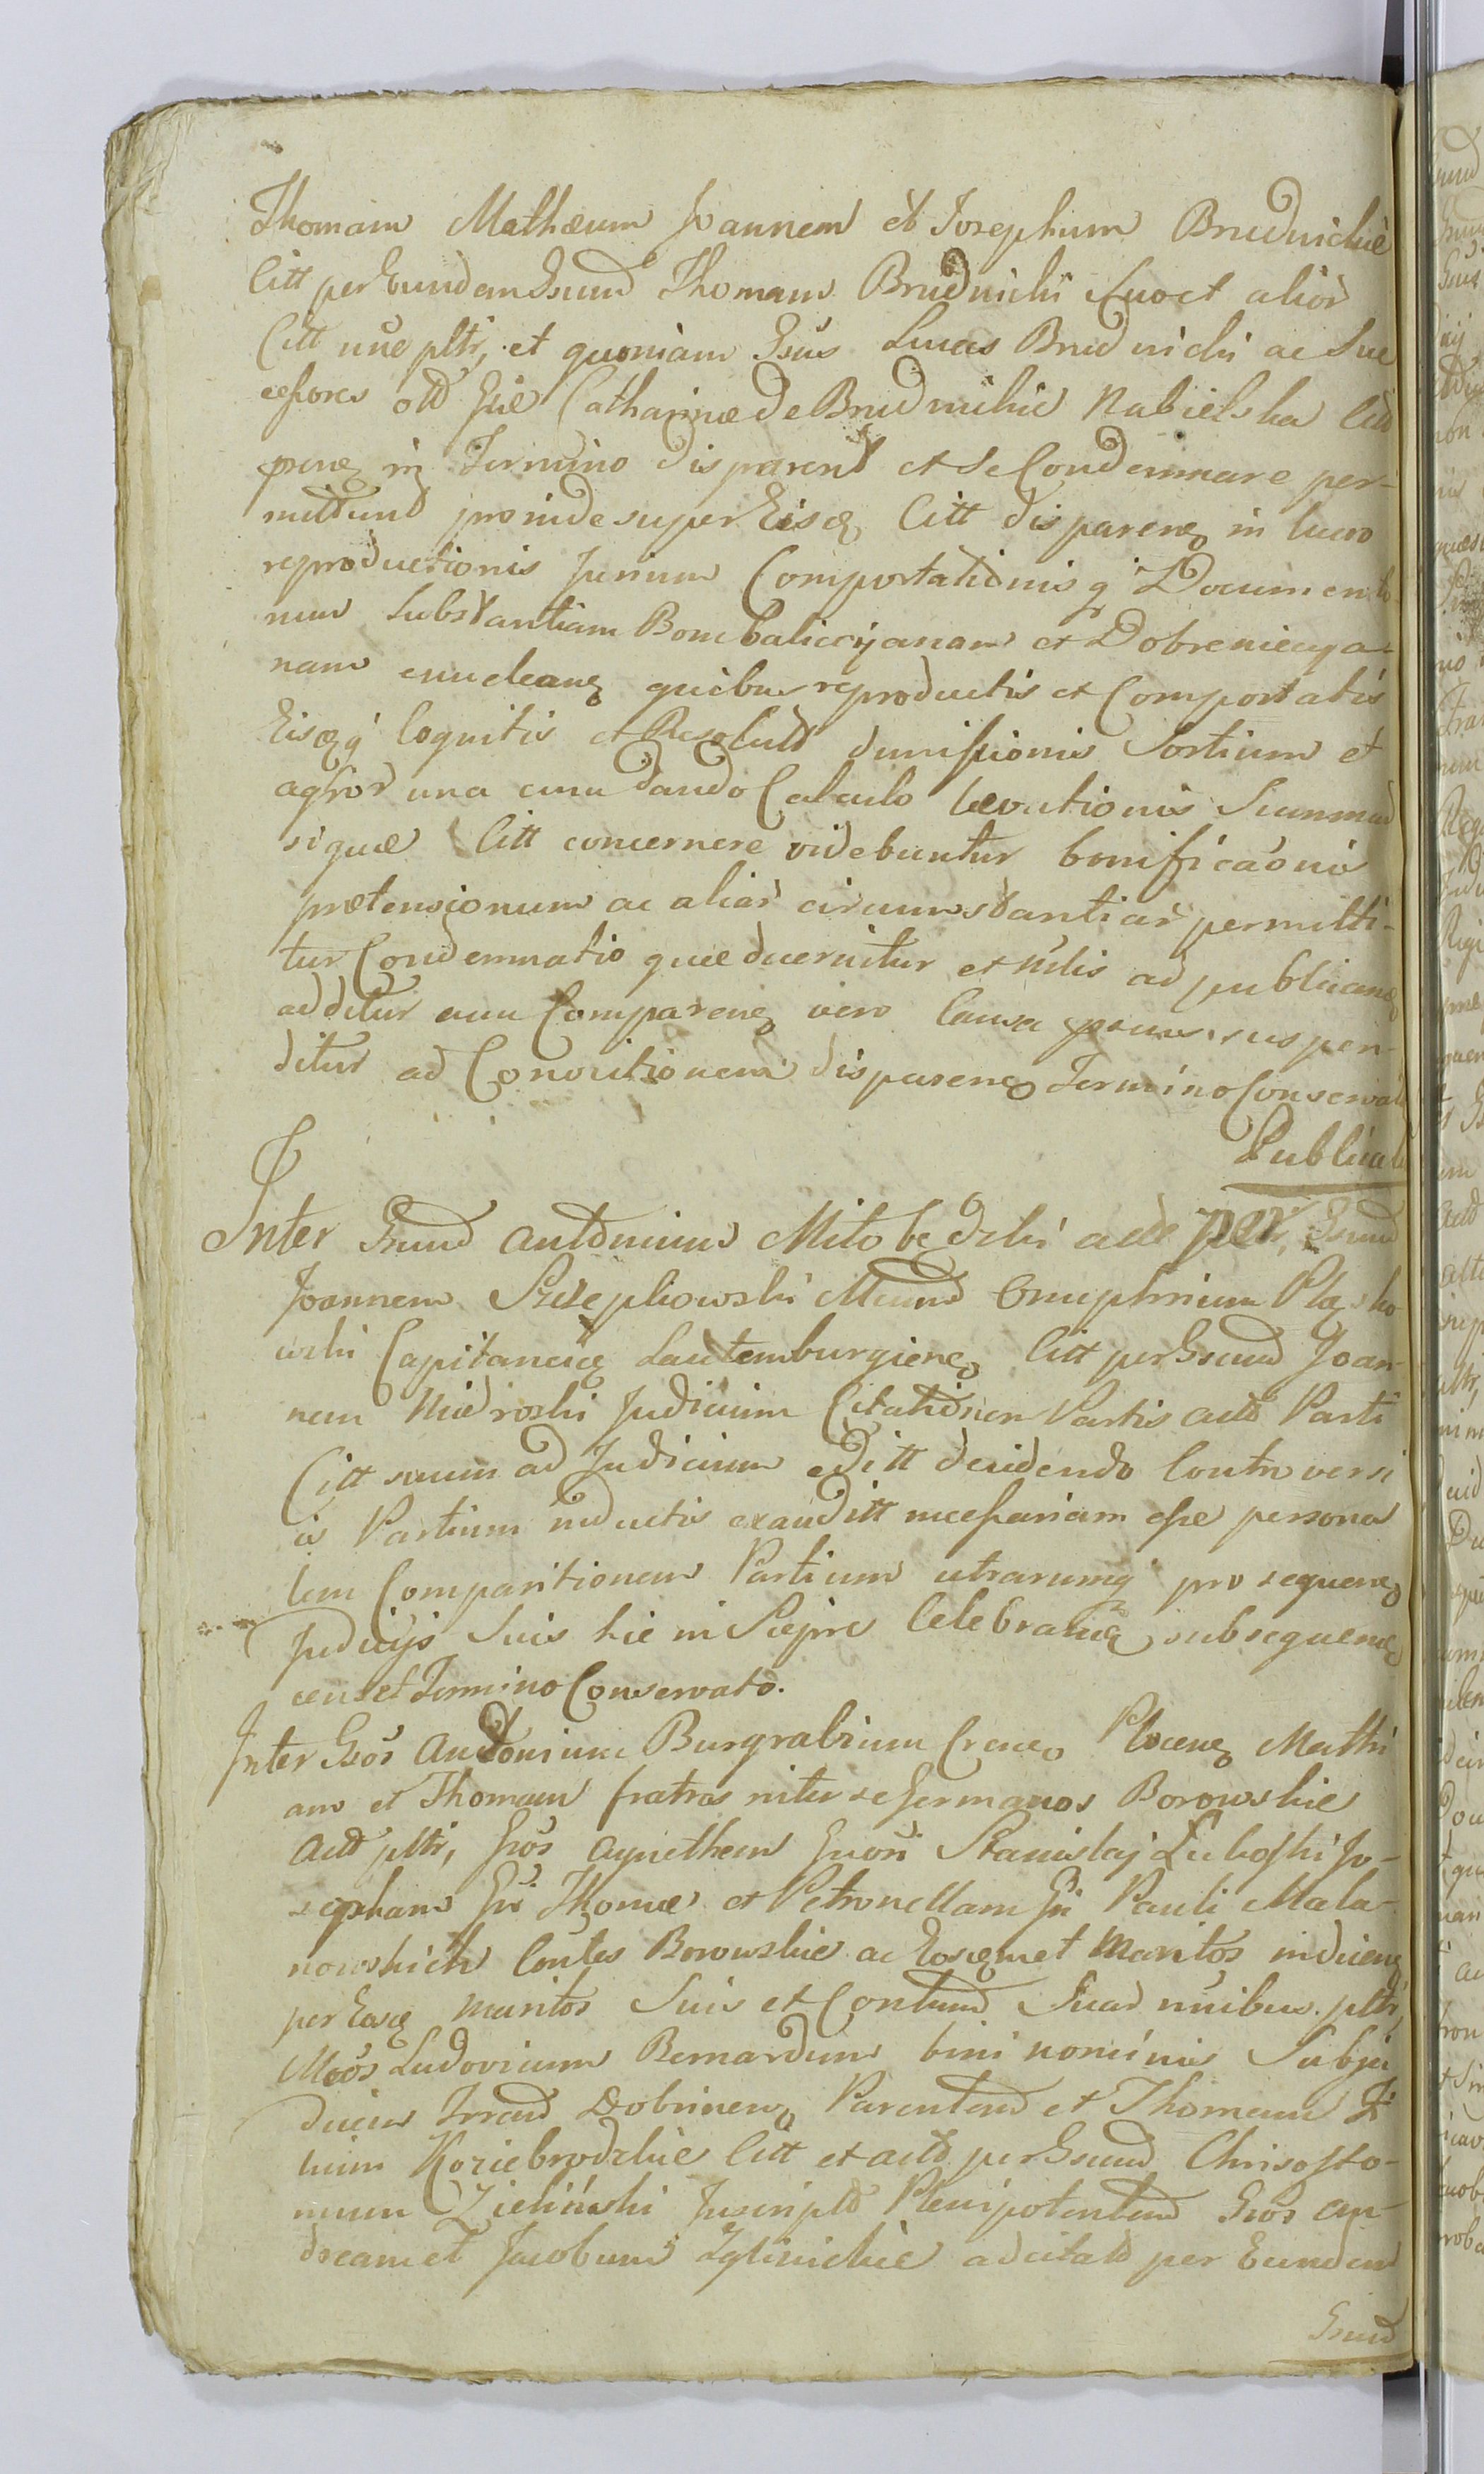 Thomam Mathæum Joannem et Josephum Brudnickie
Citt per Eundem Gsum Thomam Brudnicki Suo et alior
Citt nne pltr, et quoniam Gsus Lucas Brudnicki ac Suc
cessores olld Gsæ Catharinæ de Brudnickie Nabielska Citt
præns in Termino disparent et se Condemnare per-
mittunt proinde super Eisdem Citt disparens in lucro
reproductionis Jurium Comportationis q Documento
rum Substantiam Bombaliccyanam et Dobreniecya-
nam enucleans quibus reproductis et Comportatis
Eisq cognitis et Resolutd dimissionis Sortium et
agror una cum dando Calculo evolutionis Summar
si quæ Citt concernere videbuntur bonificaonis
prætensionum ac aliar circumstantiar permitti-
tur Condemnatio quæ decernitur et nilis ad publicans
additur cum Comparens vero Causa præns suspen-
ditur ad Convictionem disparens Termino Conservato
Publicat
Inter Gsum Antonium Mitobędzki actt per Gsum
Joannem Szczepkowski Mcum Onuphrium Pląsko
wski Capitaneum Lautemburgiens Citt per Gsum Joan-
nem Niedroski Judicium Citationem Partis actt Parti
Citt suum ad Judicium editt decidendo Controversi
is Partium inductis exauditt necessariam esse persona
lem Comparitionem Partium utrarumq pro sequens
Judicijs Suis hic in Sierpc Celebrandis subsequens
censet Termino Conservato.
Inter Gsos Antonium Burgrabium Crens Plocens Mathi
am et Thomam fratres inter se germanos Borowskie
actt pltr, Gsos Agnethem Gsi Stanislaj Luboski Jo-
sepham Gsi Thomæ et Petronellam Gsi Pauli Mala-
nowskich Contes Borowskie ac Eosdemet Maritos inducens
per Eosdem maritos Suis et Contum Suar nnibus pltr
Mcos Ludovicum Bernardum bini nominis Subju
dicem Trrum Dobrinens Parentem et Thomam Fi
lium Koziebrodzkie Citt et actt per Gsum Chrisosto-
mum Zieliński Inscriptt Plenipotentem Gsos An-
dream et Jacobum Zglinickie adcitatt per Eundem
Gsum